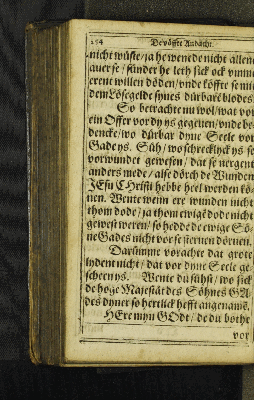 254 De vöffte Andacht.
nicht wüste / ja he wende nicht allene
auer se / sünder he leth sick ock vmme
erent willen döden / vnde köffte se mit
dem Lösegelde synes dürbare blodes.
So betrachte nu wol / wat vor
ein Offer vor dy ys gegeuen / vnde be-
dencke / wo dürbar dyne Seele vor
Gade ys. Süh / wo schrecklyck ys se
vorwundet gewesen / dat se nergent
anders mede / alse dörch de Wunden
JEsu CHristi hebbe heel werden kö-
nen. Wente wein ere wunden nicht
thom dode / ja thom ewigē dode nicht
gewest weren / so hedde de ewige Sö-
ne Gades nicht vor se steruen döruen.
Darümme vorachte dat grote
lydent nicht / dat vor dyne Seele ge-
scheen ys. Wente du sühst / wo sick
de hoge Majestät des Söhnes GA-
des dyner so hertlick hefft angenamē.
HEre myn GOdt / de du bothe
vor